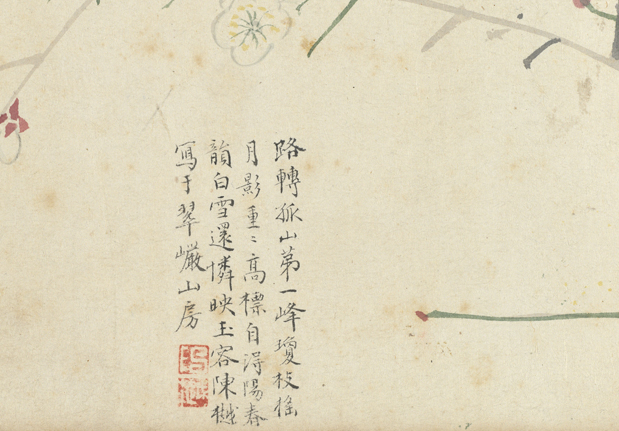 路轉孤山第一峰瓊枝搖
月影重〻高標自得陽春
韻白雪還憐映玉容陳樾
寫于翠巖山房